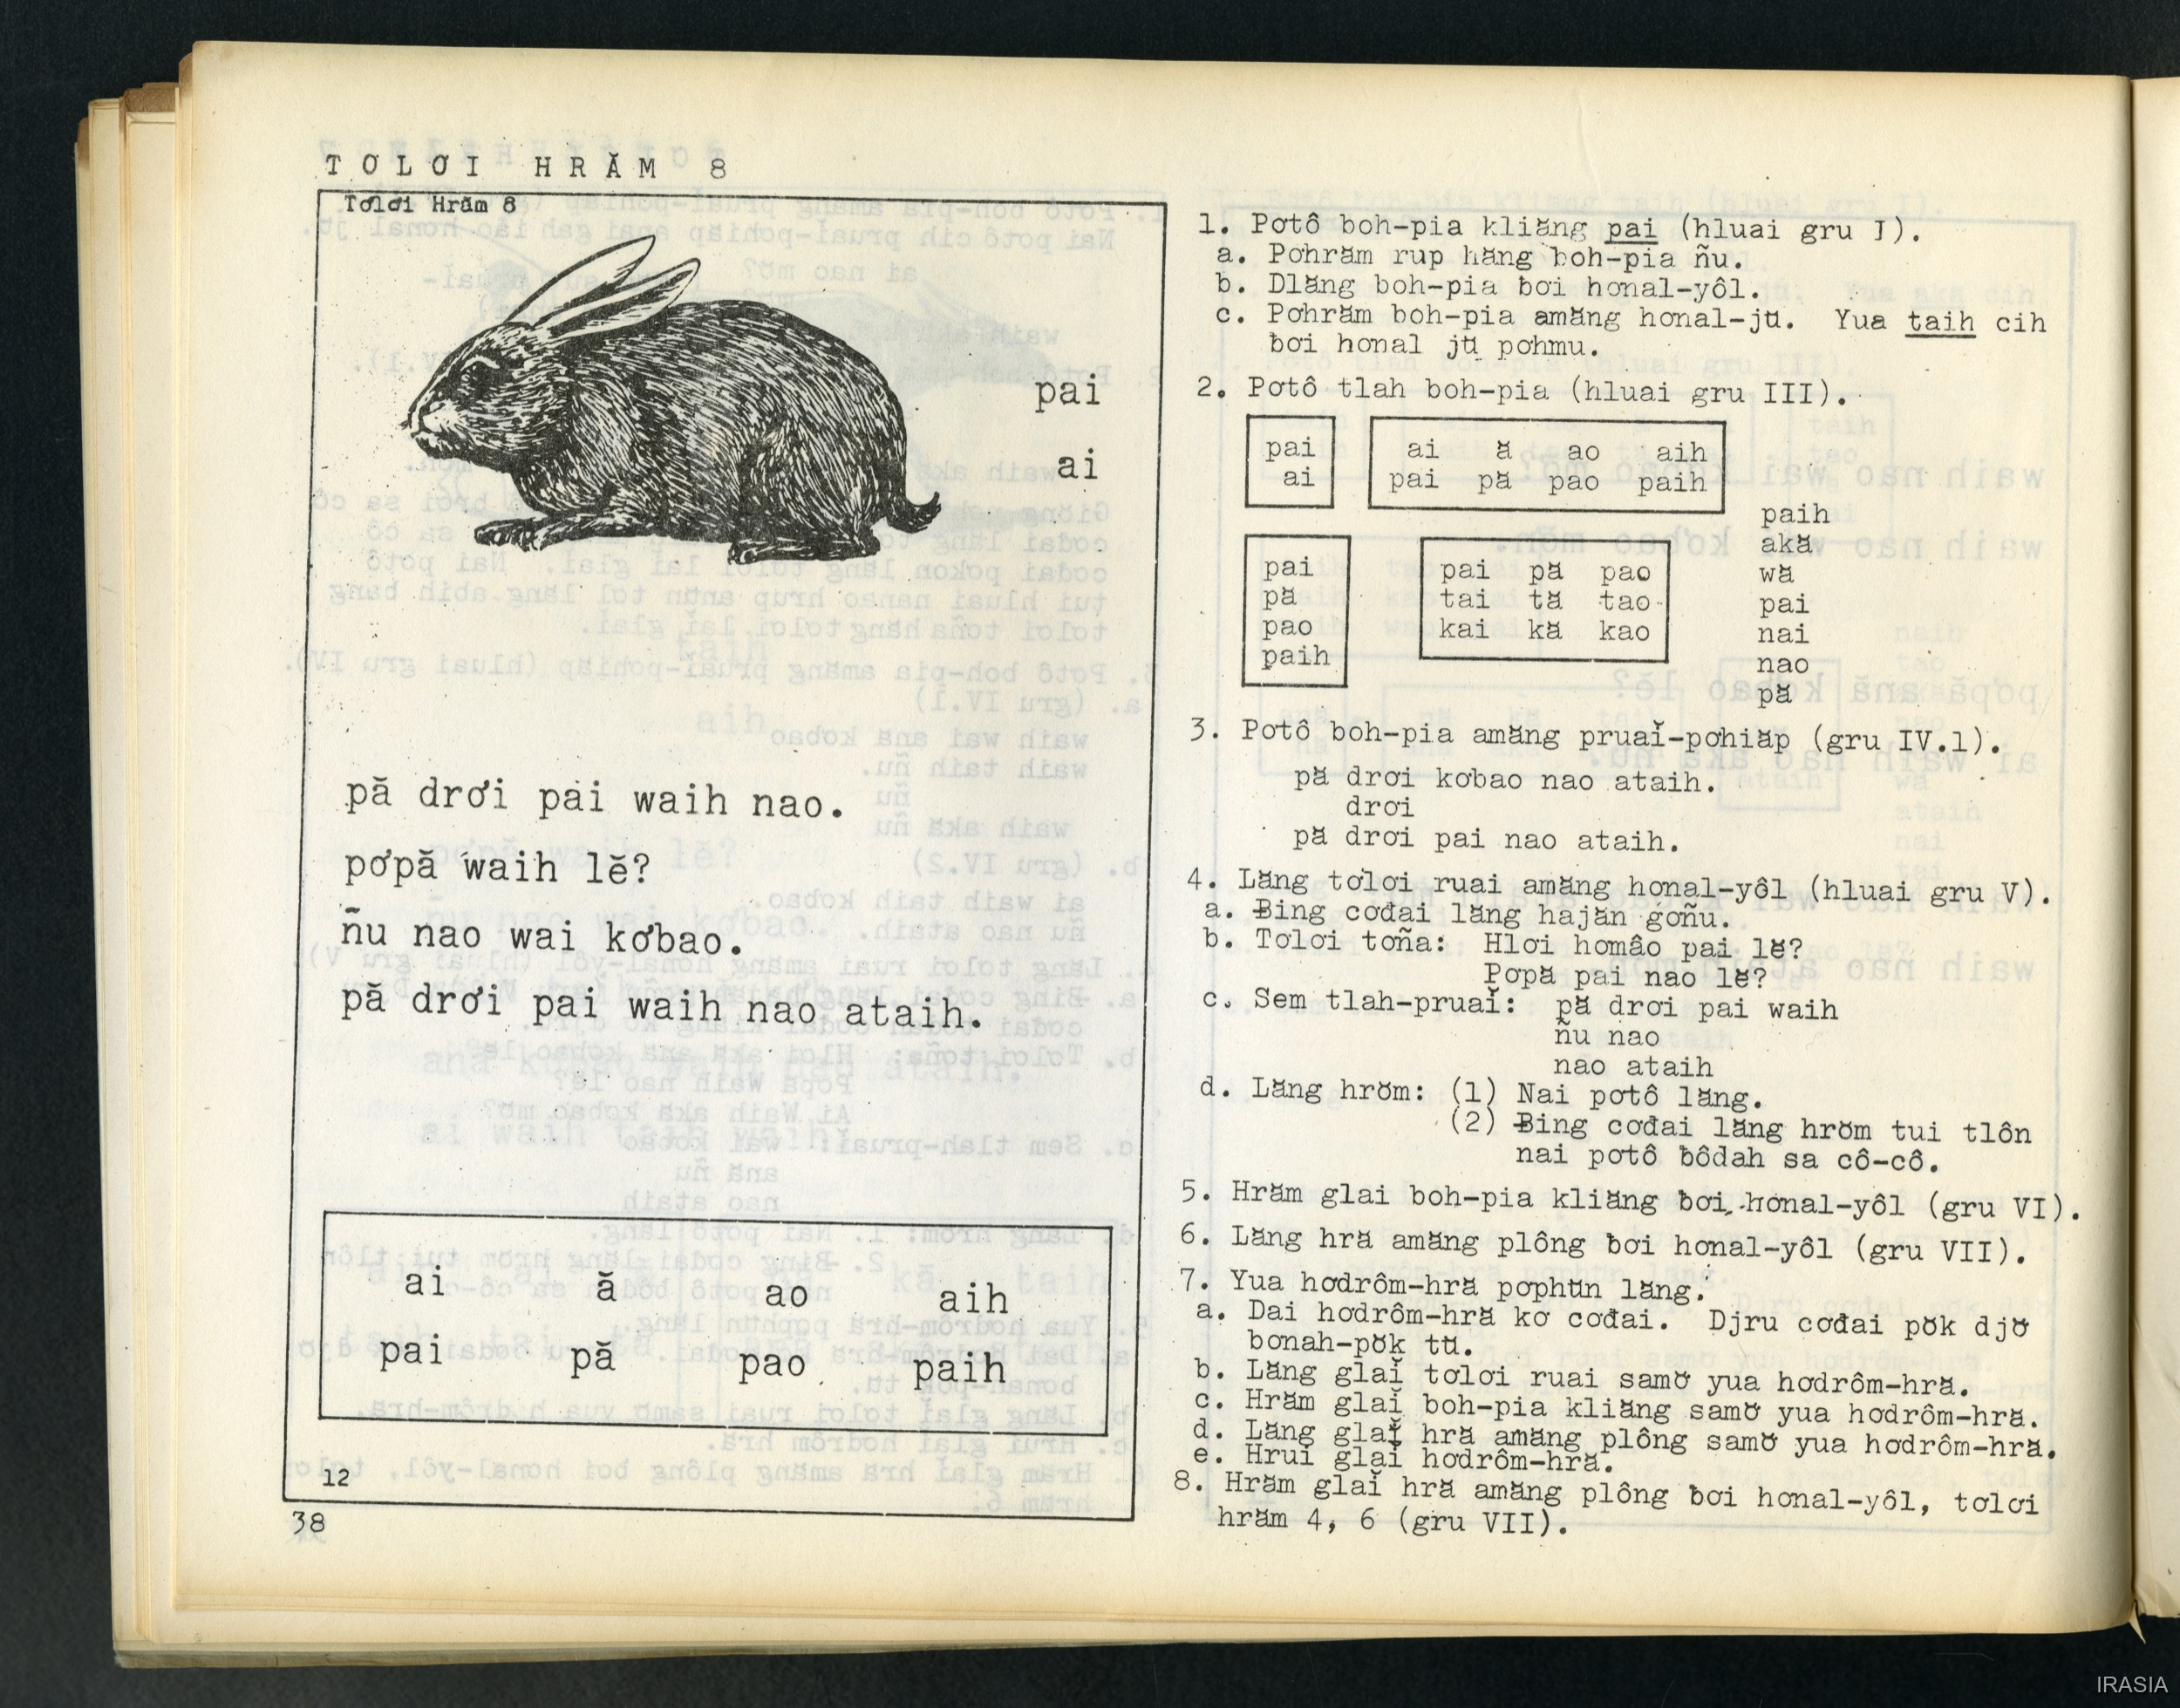 TƠLƠI HRĂM 8
Tơlơi Hrăm 8
pai
ai
pă drơi pai waih nao.
pơpă waih lĕ?
ñu nao wai kơbao.
pă drơi pai waih nao ataih.
ai ă ao aih
pai pă pao paih
12
38
1. Pơtô boh-pia kliăng pai (hluai gru I).
a. Pơhrăm rup hăng boh-pia ñu.
b. Dlăng boh-pia ƀơi hơnal-yôl.
c. Pơhrăm boh-pia amăng hơnal-jŭ. Yua taih cih
ƀơi hơnal jŭ pơhmu.
2. Pơtô tlah boh-pia (hluai gru III).
pai
ai
ai ă ao aih
pai pă pao paih
pai
pă
pao
paih
pai pă pao
tai tă tao
kai kă kao
paih
akă
wă
pai
nai
nao
pă
3. Pơtô boh-pia amăng pruaĭ-pơhiăp (gru IV.1).
pă drơi kơbao nao ataih.
drơi
pă drơi pai nao ataih.
4. Lăng tơlơi ruai amăng hơnal-yôl (hluai gru V).
a. Ƀing cơđai lăng hajăn gơñu.
b. Tơlơi tơña: Hlơi hơmâo pai lĕ?
Pơpă pai nao lĕ?
c. Sem tlah-pruaĭ: pă drơi pai waih
ñu nao
nao ataih
d. Lăng hrŏm: (1) Nai pơtô lăng.
(2) Ƀing cơđai lăng hrŏm tui tlôn
nai pơtô ƀôdah sa cô-cô.
5. Hrăm glai boh-pia kliăng ƀơi hơnal-yôl (gru VI).
6. Lăng hră amăng plông ƀơi hơnal-yôl (gru VII).
7. Yua hơdrôm-hră pơphŭn lăng.
a. Dai hơdrôm-hră kơ cơđai. Djru cơđai pŏk djơ̆
bơnah-pŏk tŭ.
b. Lăng glaĭ tơlơi ruai samơ̆ yua hơdrôm-hră.
c. Hrăm glaĭ boh-pia kliăng samơ̆ yua hơdrôm-hră.
d. Lăng glaĭ hră amăng plông samơ̆ yua hơdrôm-hră.
e. Hrui glaĭ hơdrôm-hră.
8. Hrăm glaĭ hră amăng plông ƀơi hơnal-yôl, tơlơi
hrăm 4, 6 (gru VII).
IRASIA